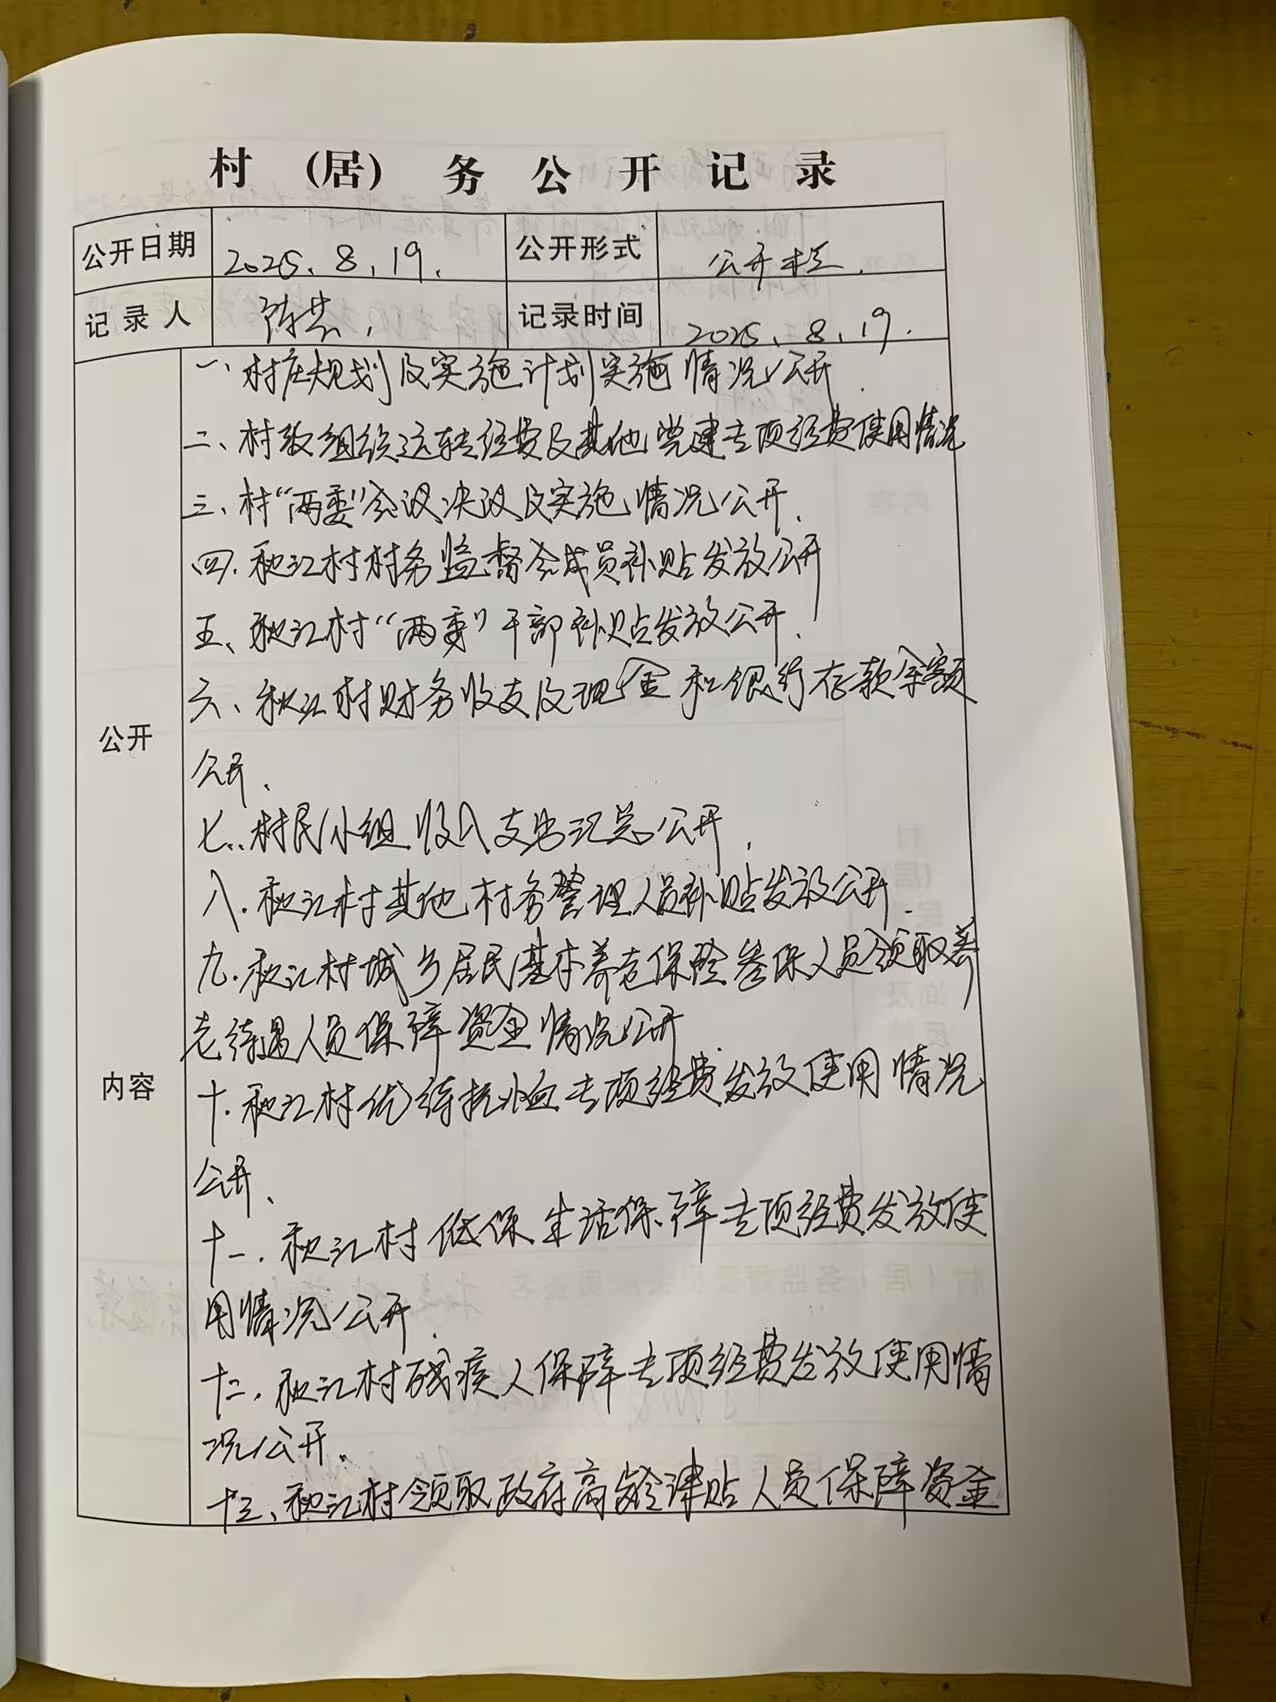 村(居)务公开记录
公开日期 2025.8.19. 公开形式 公开栏.
记录人 记录时间 2025.8.19.
一、村庄规划及实施计划实施情况公开
二、村级组织运转经费及其他党建专项经费使用情况
三、村“两委”会议决议及实施情况公开.
四.秋江村村务监督会成员补贴发放公开
五、秋江村“两委”干部补贴发放公开.
六、秋江村财务收支及现金和银行存款余额
公开.
七.村民小组收入支出汇总公开.
八.秋江村其他村务管理人员补贴发放公开.
九.秋江村城乡居民基本养老保险参保人员领取养
老待遇人员保障资金情况公开
十.秋江村优待抚恤专项经费发放使用情况
公开.
十一.秋江村低保生活保障专项经费发放使
用情况公开.
十二.秋江村残疾人保障专项经费发放使用情
况公开.
十三、秋江村领取政府高龄津贴人员保障资金
公开
内容